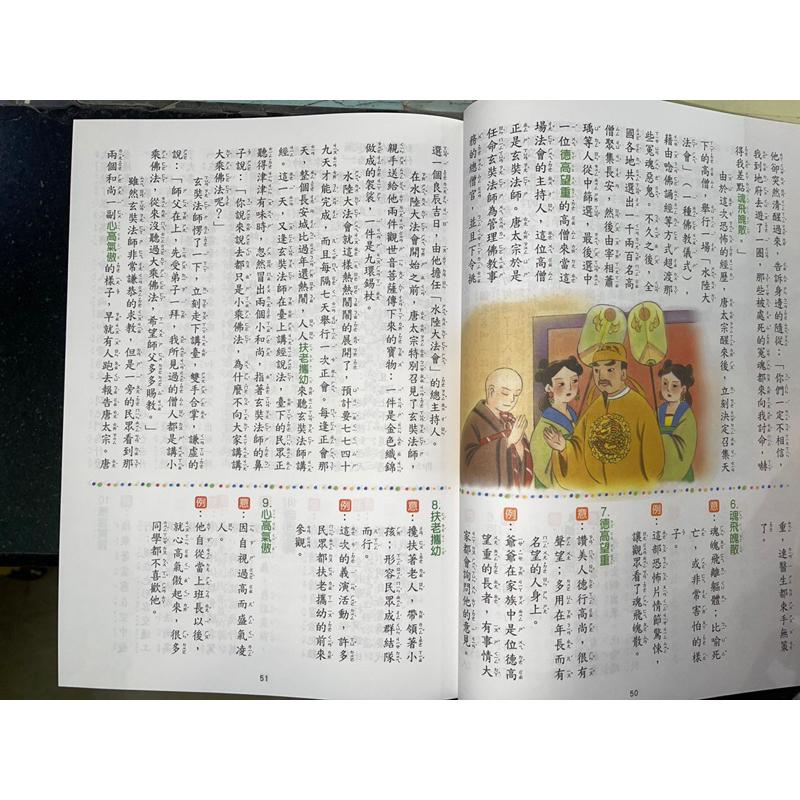 他卻突然清醒過來，告訴身邊的隨從：「你們一定不相信，
我到地府去遊了一圈，那些被處死的冤魂都來向我討命，嚇
得我差點魂飛魄散。」
由於這次恐怖的經歷，唐太宗醒來後，立刻決定召集天
下的高僧，舉行一場「水陸大
法會」（一種佛教儀式），
藉由唸佛誦經等方式超渡那
些冤魂惡鬼。不久之後，全
國各地共選出一千兩百名高
僧聚集長安，然後由宰相蕭
瑀等人從中篩選，最後選中
一位德高望重的高僧來當這
場法會的主持人，這位高僧
正是玄奘法師。唐太宗於是
任命玄奘法師為管理佛教事
務的總僧官，並且下令挑
重，連醫生都束手無策
了。
6.魂飛魄散
意：魂魄飛離軀體；比喻死
亡，或非常害怕的樣
子。
例：這部恐怖片情節驚悚，
讓觀眾看了魂飛魄散。
7.德高望重
意：讚美人德行高尚，很有
聲望；多用在年長而有
名望的人身上。
例：爺爺在家族中是位德高
望重的長者，有事情大
家都會詢問他的意見。
50
選一個良辰吉日，由他擔任「水陸大法會」的總主持人。
在水陸大法會開始之前，唐太宗特別召見了玄奘法師，
親手送給他兩件觀世音菩薩傳下來的寶物：一件是金色織錦
做成的袈裟，一件是九環錫杖。
水陸大法會就這樣熱熱鬧鬧的展開了，預計要七七四十
九天才能完成，而且每隔七天舉行一次正會。每逢正會那
天，整個長安城比過年還熱鬧，人人扶老攜幼來聽玄奘法師講
經。這一天，又逢玄奘法師在臺上講經說法，臺下的民眾正
聽得津津有味時，忽然冒出兩個小和尚，指著玄奘法師的鼻
子說：「你說來說去都只是小乘佛法，為什麼不向大家講講
大乘佛法呢？」
玄奘法師愣了一下，立刻走下講臺，雙手合掌，謙虛的
說：「師父在上，先受弟子一拜，我所見過的僧人都是講小
乘佛法，從來沒聽過大乘佛法，希望師父多多賜教。」
雖然玄奘法師非常謙恭的求教，但是一旁的民眾看到那
兩個和尚一副心高氣傲的樣子，早就有人跑去報告唐太宗。唐
8.扶老攜幼
意：攙扶著老人，帶領著小
孩；形容民眾成群結隊
而行。
例：這次的義演活動，許多
民眾都扶老攜幼的前來
參觀。
9.心高氣傲
意：因自視過高而盛氣凌
人。
例：他自從當上班長以後，
就心高氣傲起來，很多
同學都不喜歡他
51